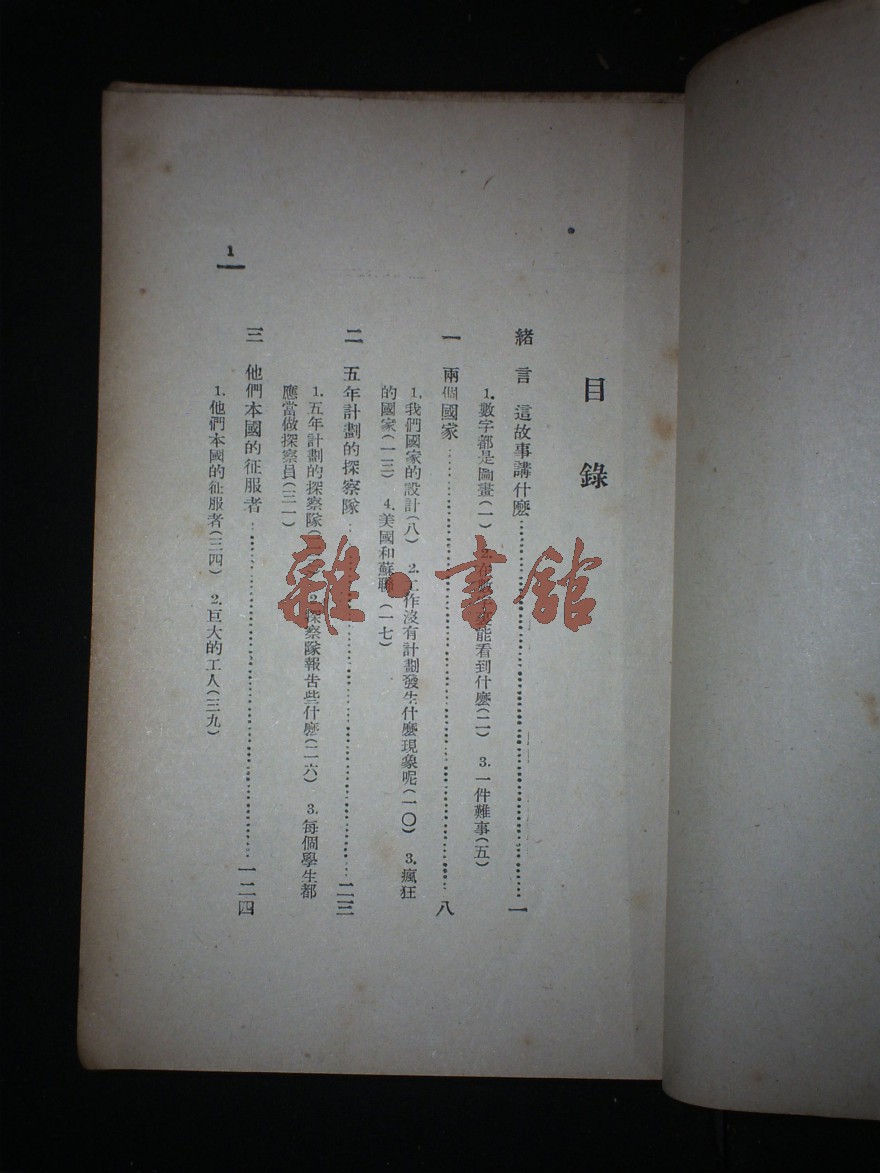 目錄
緒言 這故事講什麽……………………一
1.數字都是圖畫(一) 能看到什麽(二) 3.一件難事(五)
一 兩個國家……………………八
1.我們國家的設計(八) 2.工作沒有計劃發生什麽現象呢(一〇) 3.瘋狂
的國家(一三) 4.美國和蘇聯(一七)
二 五年計劃的探察隊……………………二三
1.五年計劃的探察隊( 2.探察隊報告些什麽(二六) 3.每個學生都
應當做探察員(三一)
三 他們本國的征服者……………………一二四
1.他們本國的征服者(三四) 2.巨大的工人(三九)
1
雜·書館